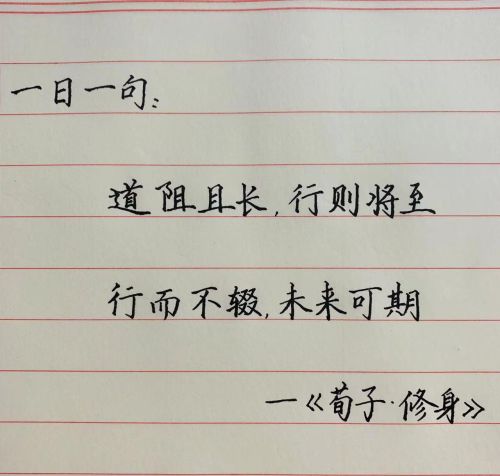 一日一句：
道阻且长，行则将至
行而不辍，未来可期
—《荀子·修身》